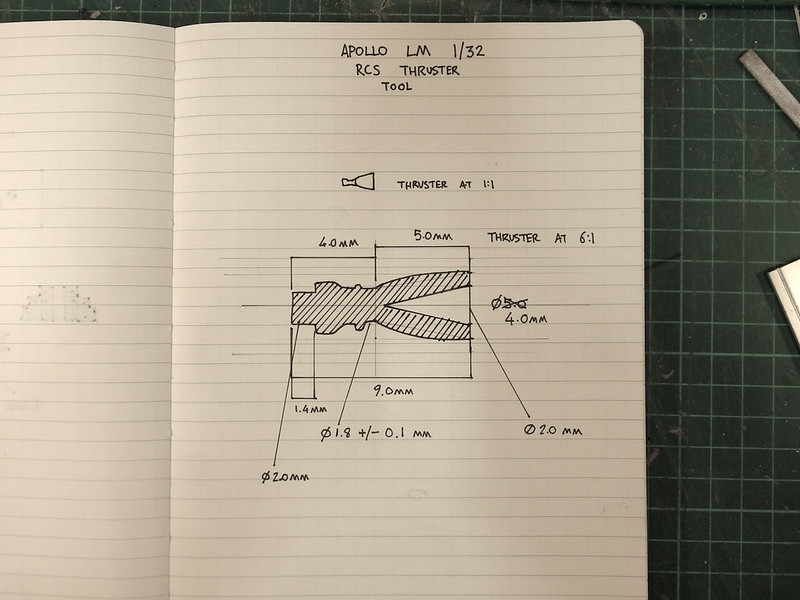 APOLLO LM 1/32
RCS THRUSTER
TOOL
THRUSTER AT 1:1
THRUSTER AT 6:1
4.0MM
5.0MM
Ø5.0
4.0MM
9.0MM
1.4MM
Ø1.8 +/- 0.1 MM
Ø2.0 MM
Ø2.0MM